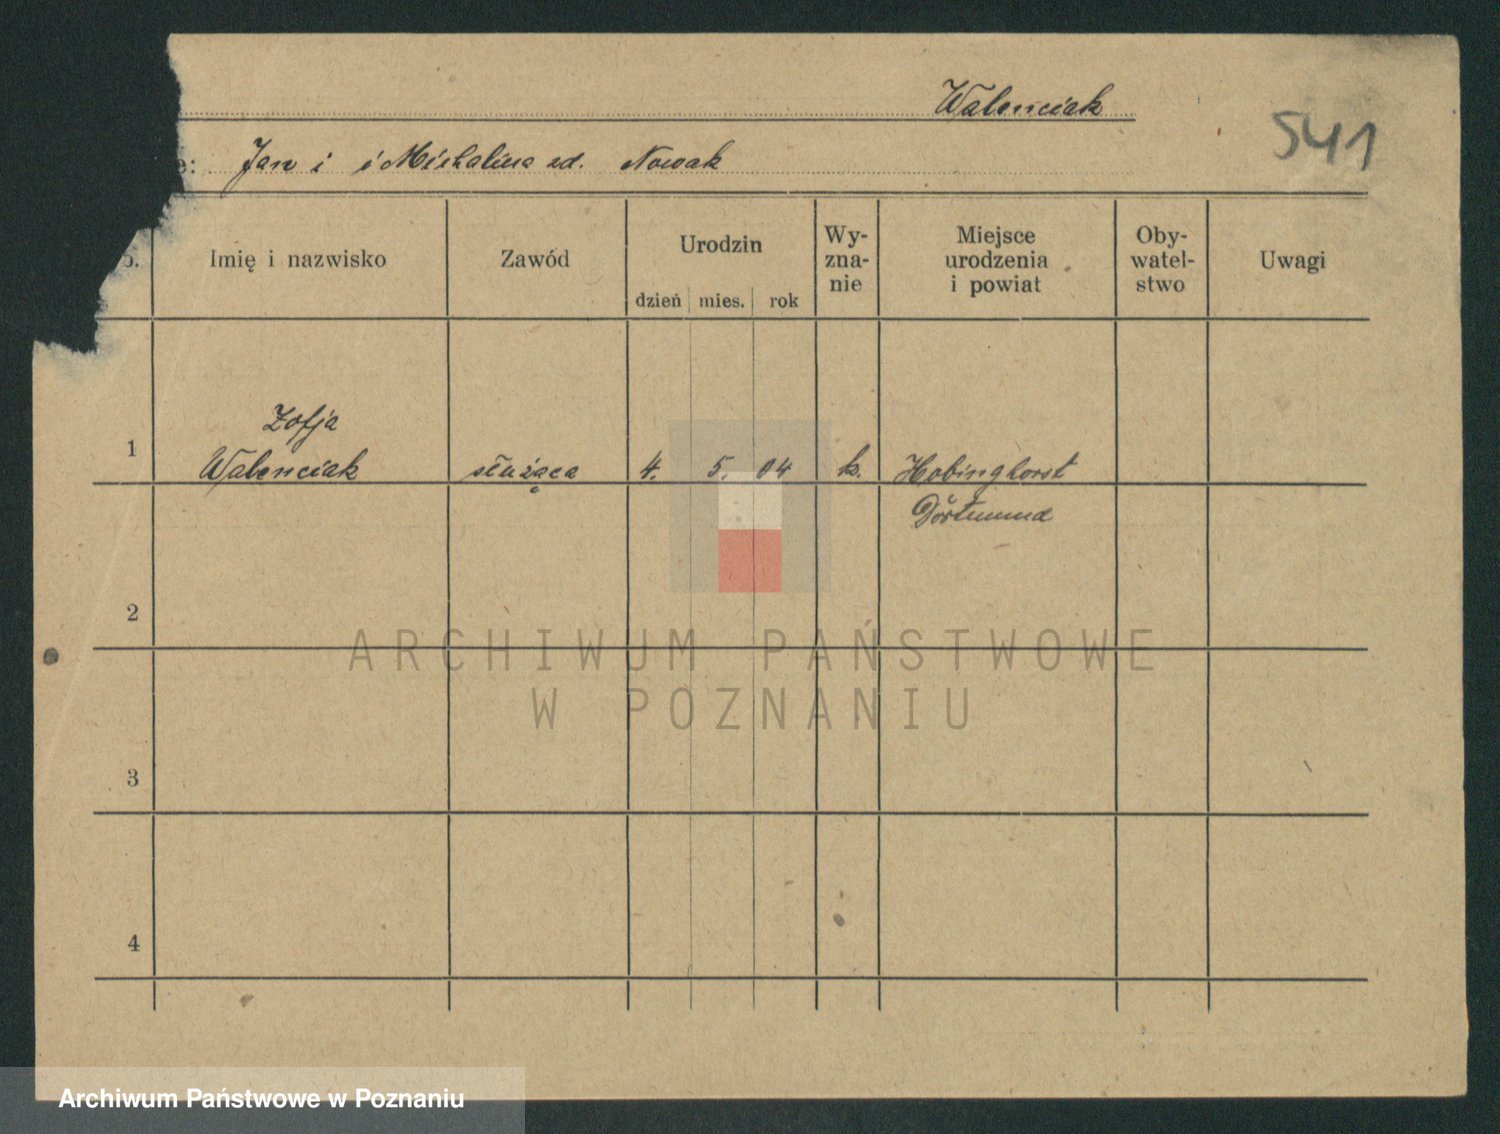 Walenciak
541
e: Jan i i Michalina zd. Nowak
Imię i nazwisko
Zawód
Urodzin
dzień mies. rok
Wy-
zna-
nie
Miejsce
urodzenia
i powiat
Oby-
watel-
stwo
Uwagi
1
Zofja
Walenciak służąca 4. 5. 04 k. Habinghorst
Dortmund
2
3
4
ARCHIWUM PAŃSTWOWE
W POZNANIU
Archiwum Państwowe w Poznaniu